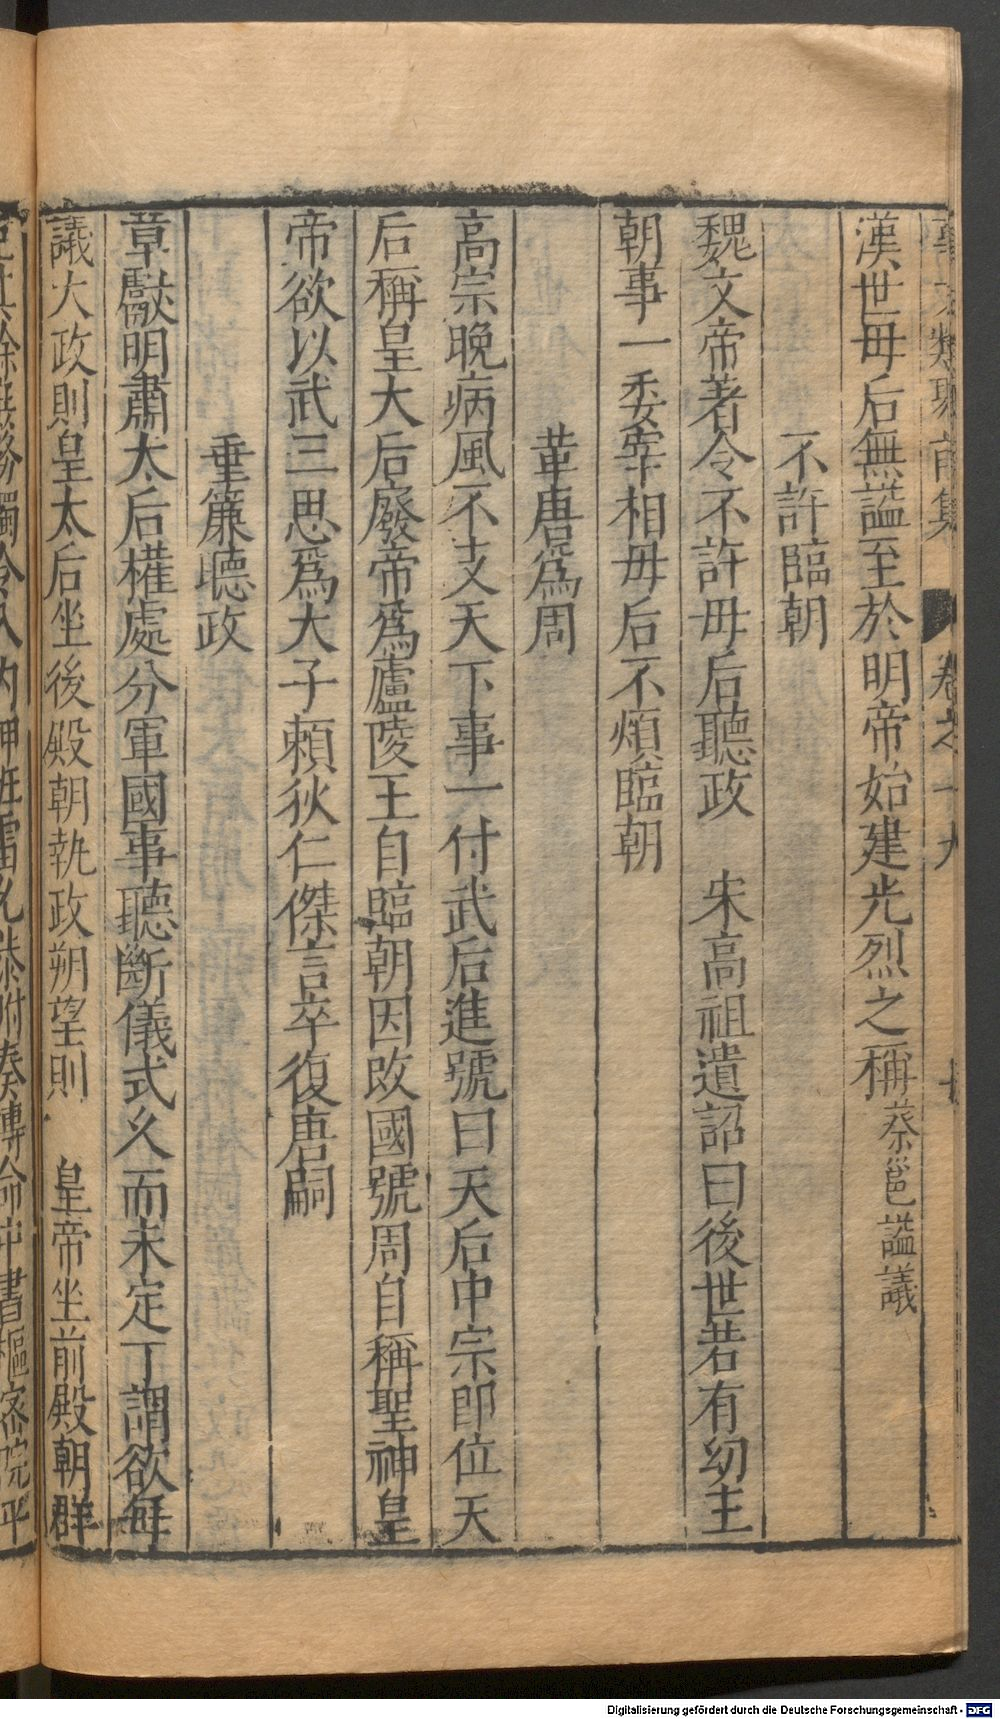 事文類聚前集 卷之十九
漢世毋后無謚至於明帝始建光烈之稱蔡邕謚議
不許臨朝
魏文帝著令不許毋后聽政 宋高祖遺詔曰後世若有幼主
朝事一委宰相毋后不煩臨朝
革唐爲周
高宗晚病風不支天下事一付武后進號曰天后中宗即位天
后稱皇大后廢帝爲廬陵王自臨朝因改國號周自稱聖神皇
帝欲以武三思爲大子頼狄仁傑言卒復唐嗣
垂簾聴政
章獻明肅太后權處分軍國事聽斷儀式久而未定丁謂欲每
議大政則皇太后坐後殿朝執政朔望則 皇帝坐前殿朝群
内押班雷允恭附奏傳命中書樞密院平
Digitalisierung gefördert durch die Deutsche Forschungsgemeinschaft - DFG